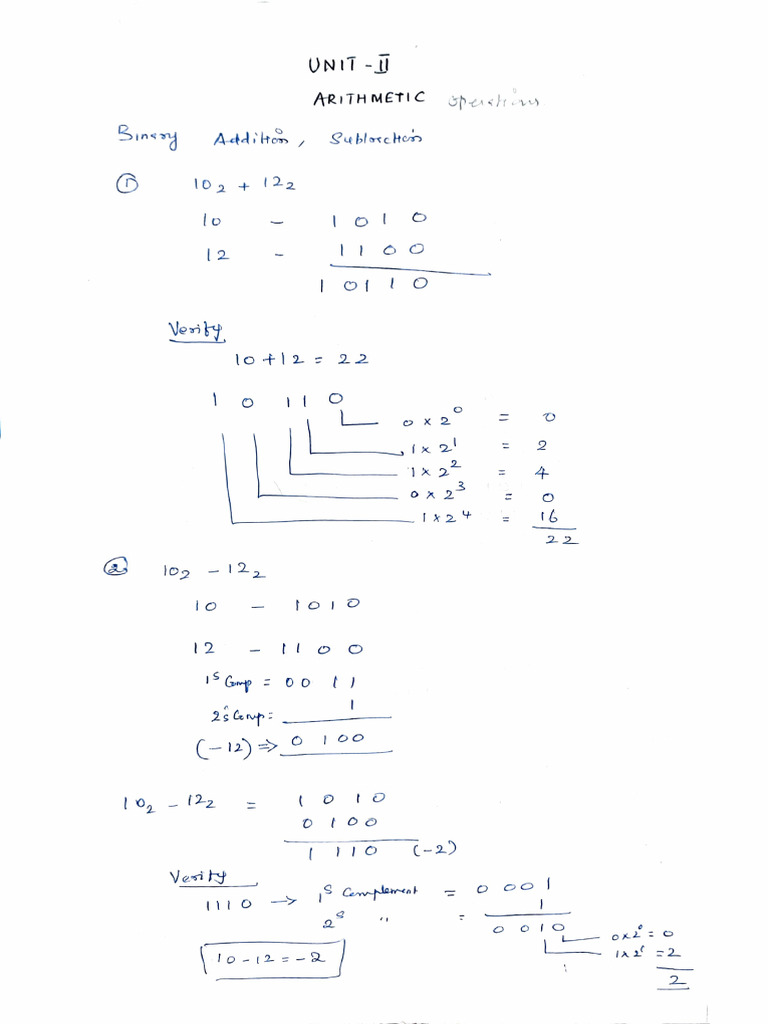 UNIT - II
ARITHMETIC Operations
Binary Addition, Subtraction
① 10₂ + 12₂
10 - 1 0 1 0
12 - 1 1 0 0
1 0 1 1 0
Verify
10 + 12 = 22
1 0 1 1 0
0 × 2⁰ = 0
1 × 2¹ = 2
1 × 2² = 4
0 × 2³ = 0
1 × 2⁴ = 16
22
② 10₂ - 12₂
10 - 1 0 1 0
12 - 1 1 0 0
1ˢ Comp = 0 0 1 1
1
2's Comp =
(-12) ⇒ 0 1 0 0
10₂ - 12₂ = 1 0 1 0
0 1 0 0
1 1 1 0 (-2)
Verify
1110 → 1ˢ Complement = 0 0 0 1
1
2ˢ " =
0 0 1 0
0×2⁰ = 0
1×2¹ = 2
2
10 - 12 = -2